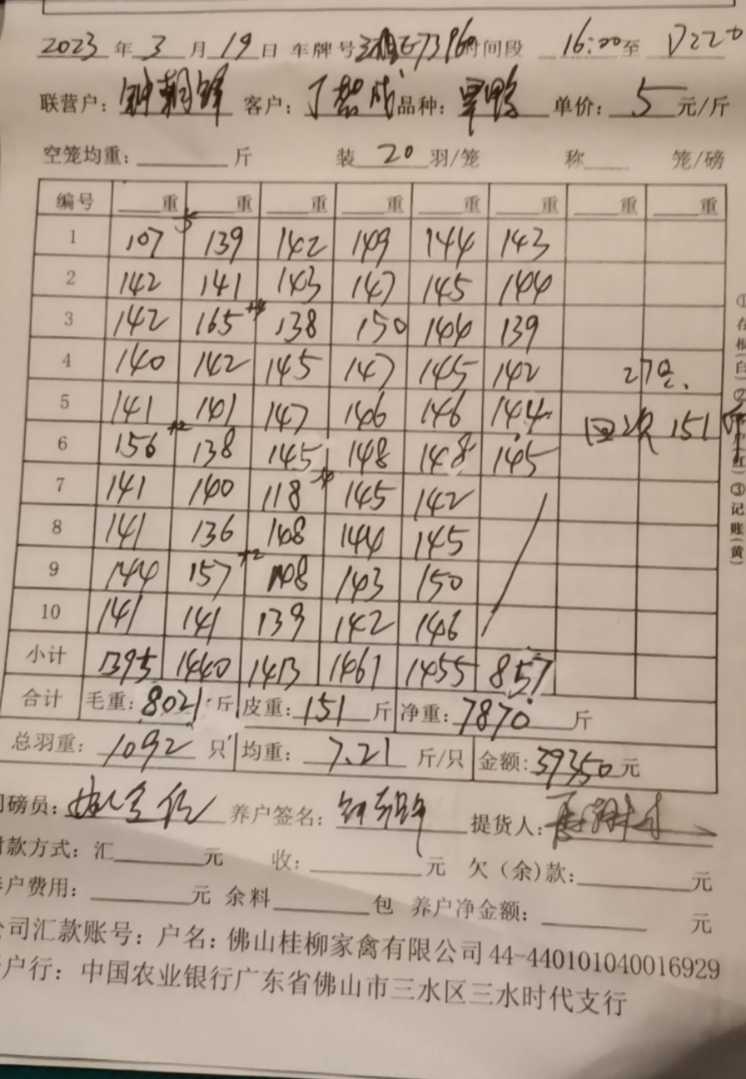 2023 年 3 月 19 日 车牌号 时间段 16:00 至
联营户: 钟朝锋 客户: 丁智成 品种: 旱鸭 单价: 5 元/斤
空笼均重: 斤 装 20 羽/笼 称 笼/磅
编号 重 重 重 重 重 重 重 重
1 107 139 142 149 144 143
2 142 141 143 147 145 144
3 142 165 138 150 144 139
4 140 142 145 147 145 142 27
5 141 141 147 146 146 144 151
6 156 138 145 148 148 145
7 141 140 118 145 142
8 141 136 148 144 145
9 144 157 148 143 150
10 141 141 139 142 146
小计 1395 1440 1413 1461 1455 857
合计 毛重: 8021 斤 皮重: 151 斤 净重: 7870 斤
总羽重: 1092 只 均重: 7.21 斤/只 金额: 39350 元
磅员: 养户签名: 提货人:
款方式: 汇 元 收: 元 欠(余)款: 元
户费用: 元 余料 包 养户净金额: 元
公司汇款账号: 户名: 佛山桂柳家禽有限公司 44-440101040016929
户行: 中国农业银行广东省佛山市三水区三水时代支行
③记账(黄)